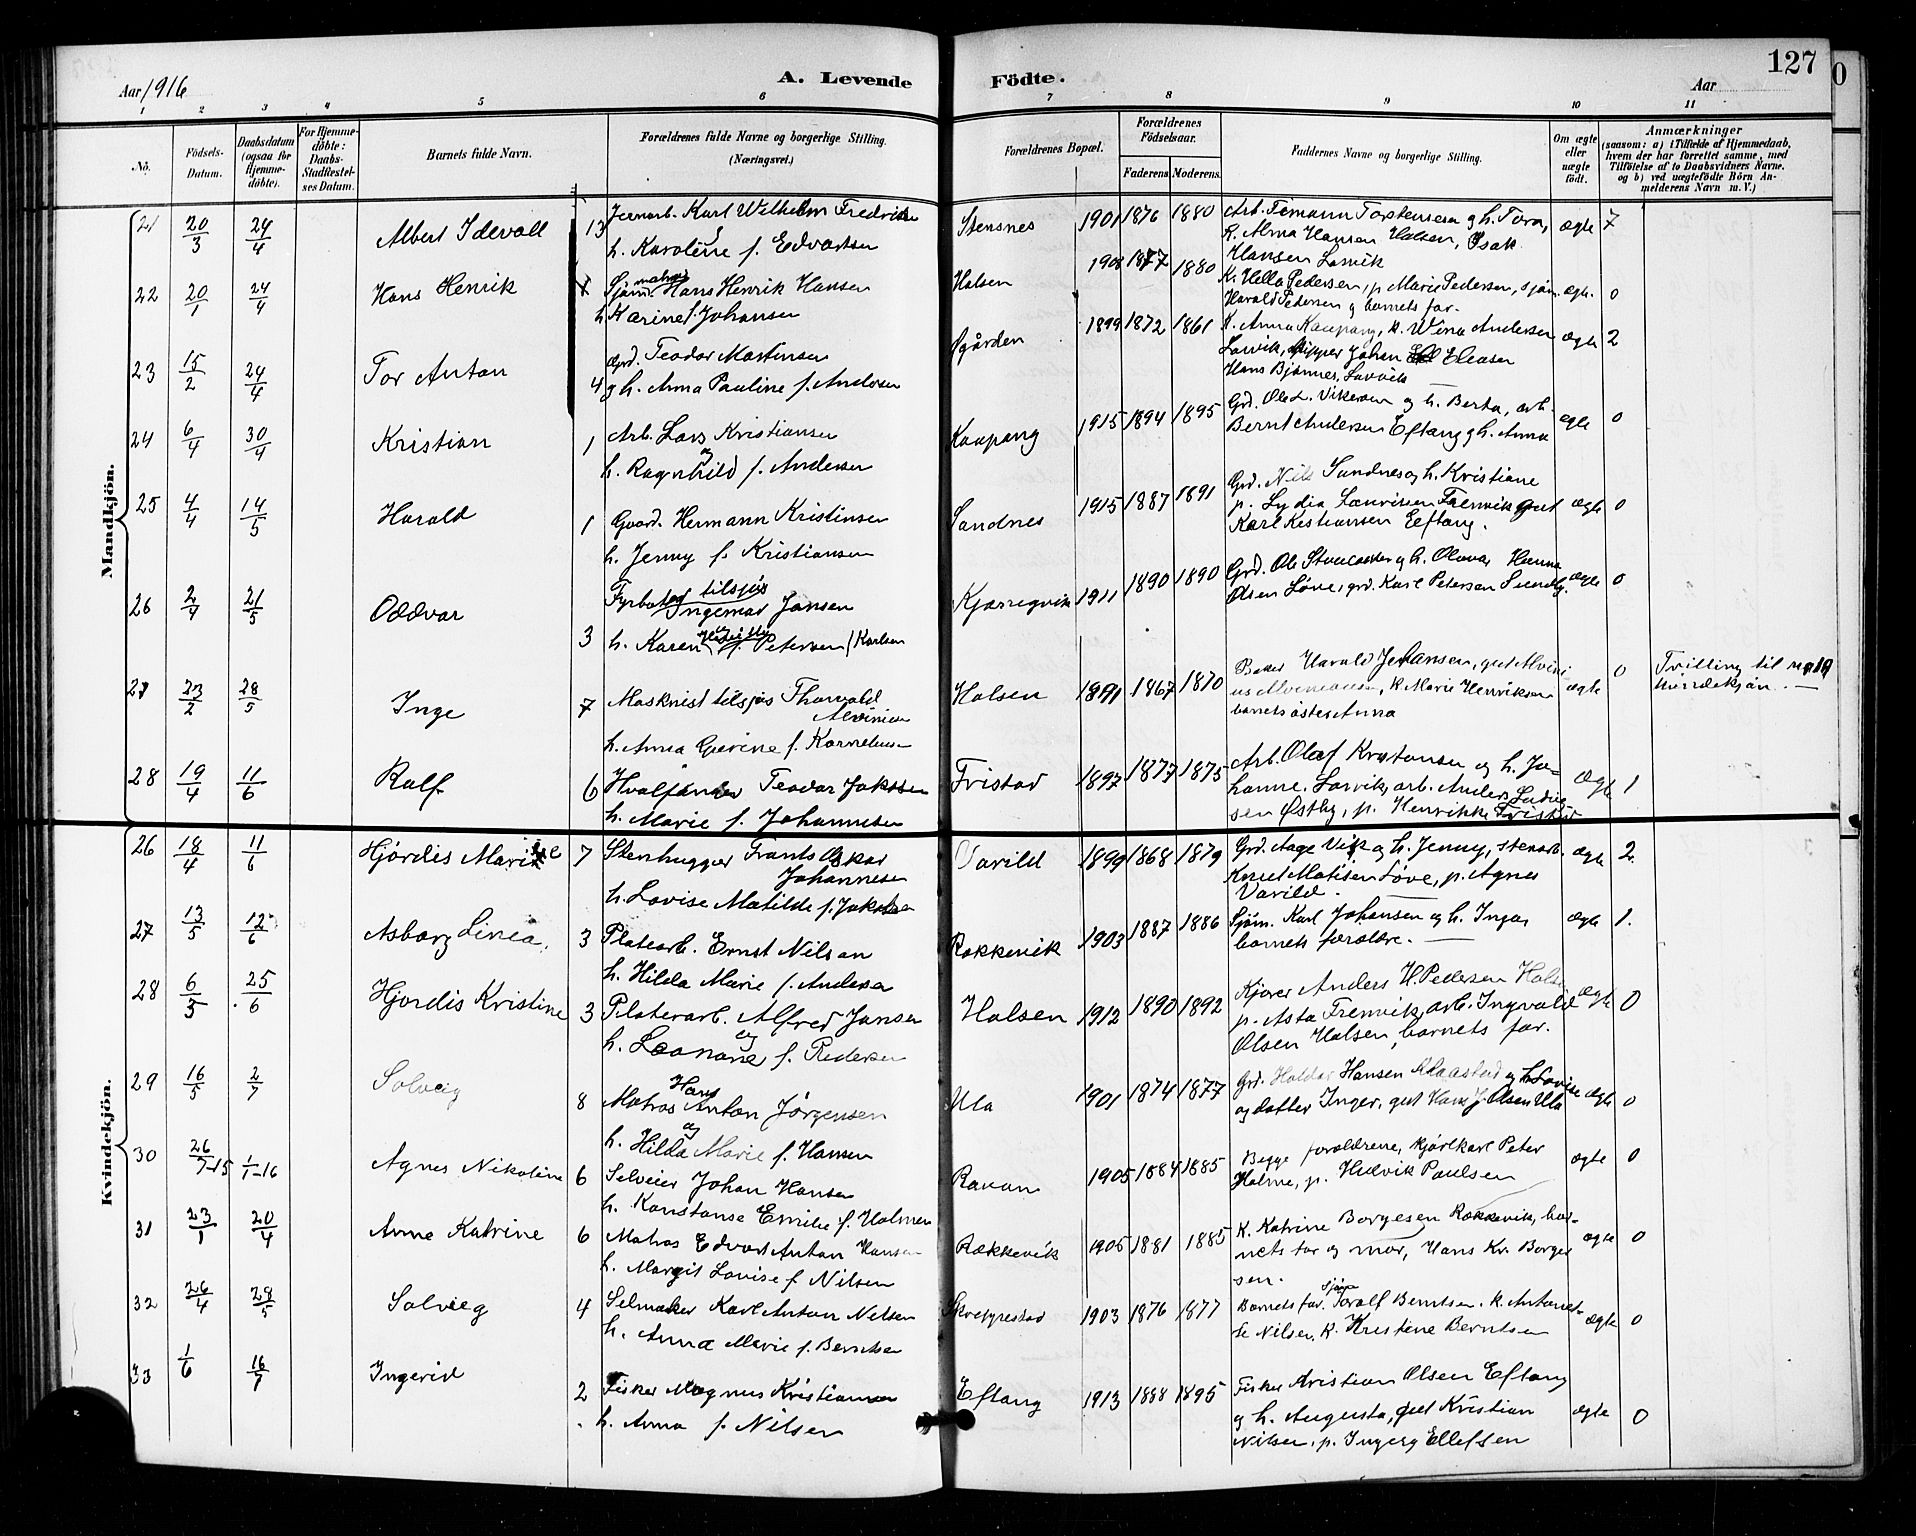 127
0
Aar 1916
A. Levende
Födte.
Aar
1 2 3 4 5 6 7 8 9 10 11
No.
Födsels-Datum.
Daabsdatum (ogsaa for Hjemme-döbte).
For Hjemme-döbte: Daabs-Stadfestel-ses Datum.
Barnets fulde Navn.
Forældrenes fulde Navne og borgerlige Stilling. (Næringsvei.)
Forældrenes Bopæl.
Forældrenes Födselsaar.
Faderens Moderens.
Faddernes Navne og borgerlige Stilling.
Om ægte eller uægte födt.
Anmærkninger
(saasom: a) i Tilfælde af Hjemmedaab, hvem der har forrettet samme, med Tilföielse af to Daabsvidners Navne, og b) ved uægtefödte Börn An-melderens Navn m. V.)
Mandkjön.
21 20/3 24/4 Albert Idevall 13 Jernarb. Karl Wilhelm Fredriksen
h. Karoline f. Edvardsen
Stensnes 1901 1876 1880 Arb. Temann Torstensen og h. Tora,
K. Alma Hansen Halsen, Isak
Hansen Larvik ægte 7
22 20/1 24/4 Hans Henrik Sjöm. matros Hans Henrik Hansen
h. Karine f. Johansen
Halsen 1908 1877 1880 K. Hella Pedersen, p. Marie Pedersen, sjöm.
Harald Pedersen og barnets far. ægte 0
23 15/2 24/4 Tor Anton 4 Grd. Teodor Martinsen
og h. Anna Pauline f. Andersen
Øgården 1899 1872 1861 K. Anna Kaupang, K. Wina Andersen
Larvik, skipper Johan Eliasen
Hans Bjönnes, Larvik ægte 2
24 6/4 30/4 Kristian 1 Arb. Lars Kristiansen
og
h. Ragnhild f. Andersen
Kaupang 1915 1894 1895 Grd. Ole L. Vikersen og h. Berta, arb.
Bernt Andersen Eftang og h. Anna ægte 0
25 4/4 14/5 Harald 1 Gaard. Hermann Kristinsen
h. Jenny f. Kristiansen
Sandnes 1915 1887 1891 Grd. Nils Sandnes og h. Kristiane
p. Lydia Lauvisen Frenvik gut
Karl Kristiansen Eftang. ægte 0
26 2/4 21/5 Oddvar 3 Fyrböter tilsjös
Ingemar Jansen
h. Karen f. Petersen (Karlsen
Kjærregvik 1911 1890 1890 Grd. Ole og h. Olava, Hanna
Olsen Löve, grd. Karl Petersen Sundby. ægte 0
27 23/2 28/5 Inge 7 Maskinist tilsjös Thorvald
Alvinius
h. Anna Gurine f. Kornelius
Halsen 1891 1867 1870 Harald Johansen, gut Alvini-
us K. Marie Henriksen
barnets öster Anna ægte 0 Tvilling til no 19
kvindekjön. —
28 19/4 11/6 Ralf 6 Hvalfanger Teodor Jakobsen
h. Marie f. Johannesen
Tristad 1897 1877 1875 Arb. Olaf Kristansen og h. Jo-
hanne, Larvik, arb. Anders Ludvig-
sen Østby, p. Henrikke Tristad ægte 1
Kvindekjön.
26 18/4 11/6 Hjördis Marie 7 Stenhugger Frants Oskar
Johannesen
h. Lovise Matilde f. Jakobsen
Varild 1899 1868 1879 Grd. Aage Vik og h. Jenny, stenarb.
Knut Matisen Löve, p. Agnes
Varild. ægte 2
27 13/5 12/6 Asborg Linea. 3 Platearb. Ernst Nilsen
h. Hilda Marie f. Andersen
Rakkevik 1903 1887 1886 Sjöm. Karl Johansen og h. Inga,
barnets forældre. — ægte 1.
28 6/3 25/6 Hjordis Kristine 3 Platearb. Alfred Jansen
og
h. Leonane f. Pedersen
Halsen 1912 1890 1892 Kjører Anders H. Pedersen Halsen
p. Asta Frenvik, arb. Ingvald
Olsen Halsen, barnets far. ægte 0
29 16/5 2/7 Solveig 8 Matros Hans Anton Jørgensen
og
h. Hilda Marie f. Hansen
Ula 1901 1874 1877 Grd. Haldor Hansen Klaastad og h. Lovise
og datter Inger, gut Hans J. Olsen Ula ægte 0
30 26/7-15 1/1-16 Agnes Nikoline 6 Selveier Johan Hansen
h. Konstanse Emilie f. Holmen
Ravan 1905 1884 1885 Begge forældrene, kjørekarl Peter
Holme, p. Hulvik Paulsen ægte 0
31 23/1 20/4 Anne Katrine 6 Matros Edvard Anton Hansen
h. Margit Lovise f. Nilsen
Rækkevik 1905 1881 1885 K. Katrine Borgesen Rækkevik, bar-
nets far og mor, Hans Kr. Borge-
sen. ægte 0
32 26/4 28/5 Solveig 4 Selmaker Karl Anton Nilsen
h. Anna Marie f. Berntsen
Skreppestad 1903 1876 1877 Barnets far. Sjöm. Toralf Berntsen. K. Antonet-
te Nilsen, K. Kristine Berntsen ægte 0
33 1/6 16/7 Ingerid 2 Fisker Magnus Kristiansen
h. Anna f. Nilsen
Eftang 1913 1888 1895 Fisker Kristian Olsen Eftang
og h. Augusta, gut Kristian
Nilsen, p. Ingerg Ellefsen ægte 0